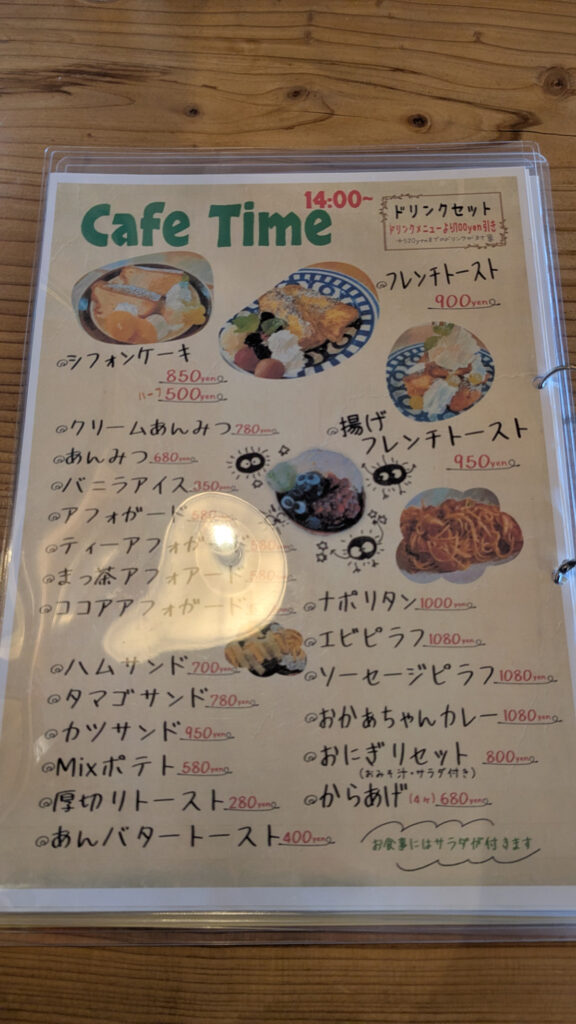 Cafe Time
14:00~
ドリンクセット
ドリンクメニューより100yen引き
@フレンチトースト
900yen
@シフォンケーキ
850yen
ハーフ500yen
@クリームあんみつ 780yen
@あんみつ 680yen
@バニラアイス 350yen
@アフォガード
@ティーアフォガード
@まっ茶アフォアード
@ココアアフォガード
@揚げ
フレンチトースト
950yen
@ナポリタン 1000yen
@エビピラフ 1080yen
@ソーセージピラフ 1080yen
@おかあちゃんカレー 1080yen
@おにぎリセット 800yen
(おみそ汁・サラダ付き)
@からあげ(4ヶ) 680yen
お食事にはサラダが付きます
@ハムサンド 700yen
@タマゴサンド 780yen
@カツサンド 950yen
@Mixポテト 580yen
@厚切リトースト 280yen
@あんバタートースト 400yen